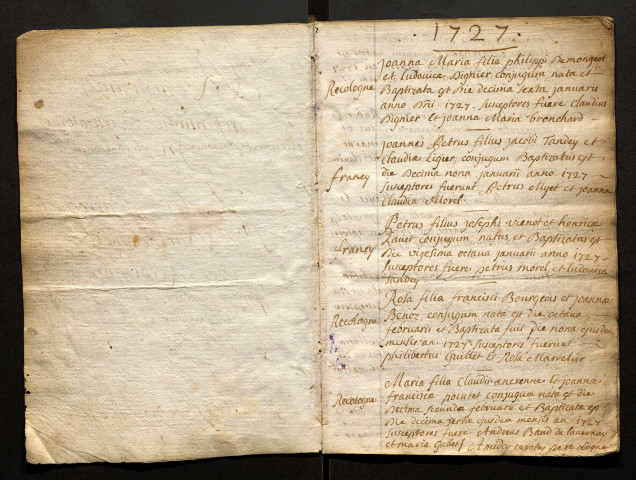 1727.
Joanna Maria filia philippi Demongeot
et Ludovica Dignier conjugum, nata et
Recologne
Baptizata est die decima sexta januarii
anno Dni 1727. Susceptores fuere claudius
Dignier et joanna Maria Bronchard
Joannes Petrus filius jacobi Tandey et
Claudiæ Ligier, conjugum Baptizatus est
franey
die Decima nona januarii anno 1727
Susceptores fuerunt Petrus Myet et joanna
Claudia Morel
Petrus filius josephi vienot et henrica
franey
conjugum natus et Baptizatus est
Die vigesima octava januarii anno 1727
Susceptores fuere petrus morel et Ludovica
Tandey
Rosa filia francisci Bourgeois et joanna
Recologne
Benoz, conjugum nata est die octava
februarii et Baptizata fuit Die nona ejusdem
mensis an 1727. Susceptores fuerunt
philibertus Guillet et Rosa
Maria filia Claudii et joanna
francisca conjugum nata est die
Recologne
Decima secunda februarii et Baptizata est
Die decima tertia ejusdem mensis an 1727
Susceptores fuere Andreas Baud de
et maria Amidey curatus De recologne